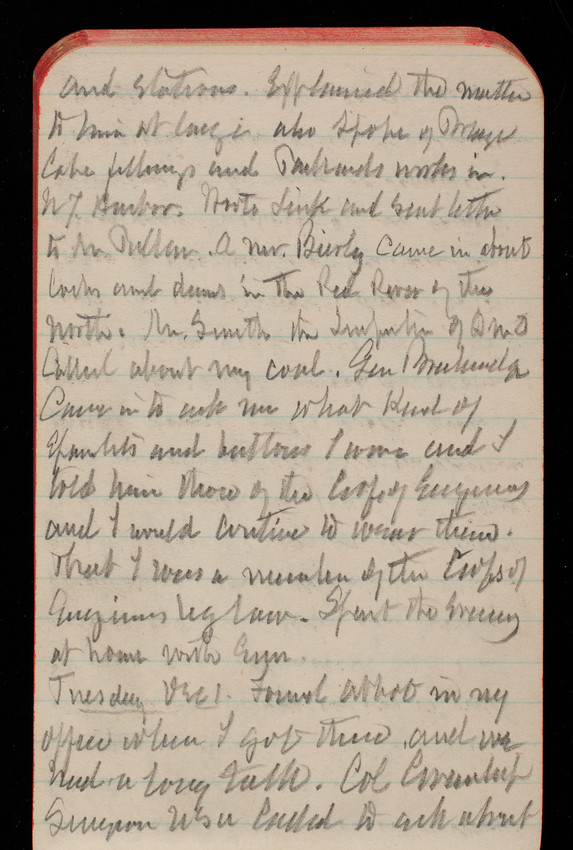 and stations. Explained the matter
to him at large. also Spoke of
and works in
N.Y. Harbor. Wrote Link and Sent letter
to Mr. A Mr. Bierly came in about
locks and dams in the Red River of the
North. Mr. Smith the of
Called about my coal. Gen
Came in to ask me what kind of
Epaulets and buttons I wore and I
told him those of the Corps of Engineers
and I would continue to wear them.
That I was a member of the Corps of
Engineers by law. Spent the Evening
at home with
Tuesday Dec 1. Found Abbot in my
office when I got there, and we
had a long talk. Col
Surgeon USA Called to ask about